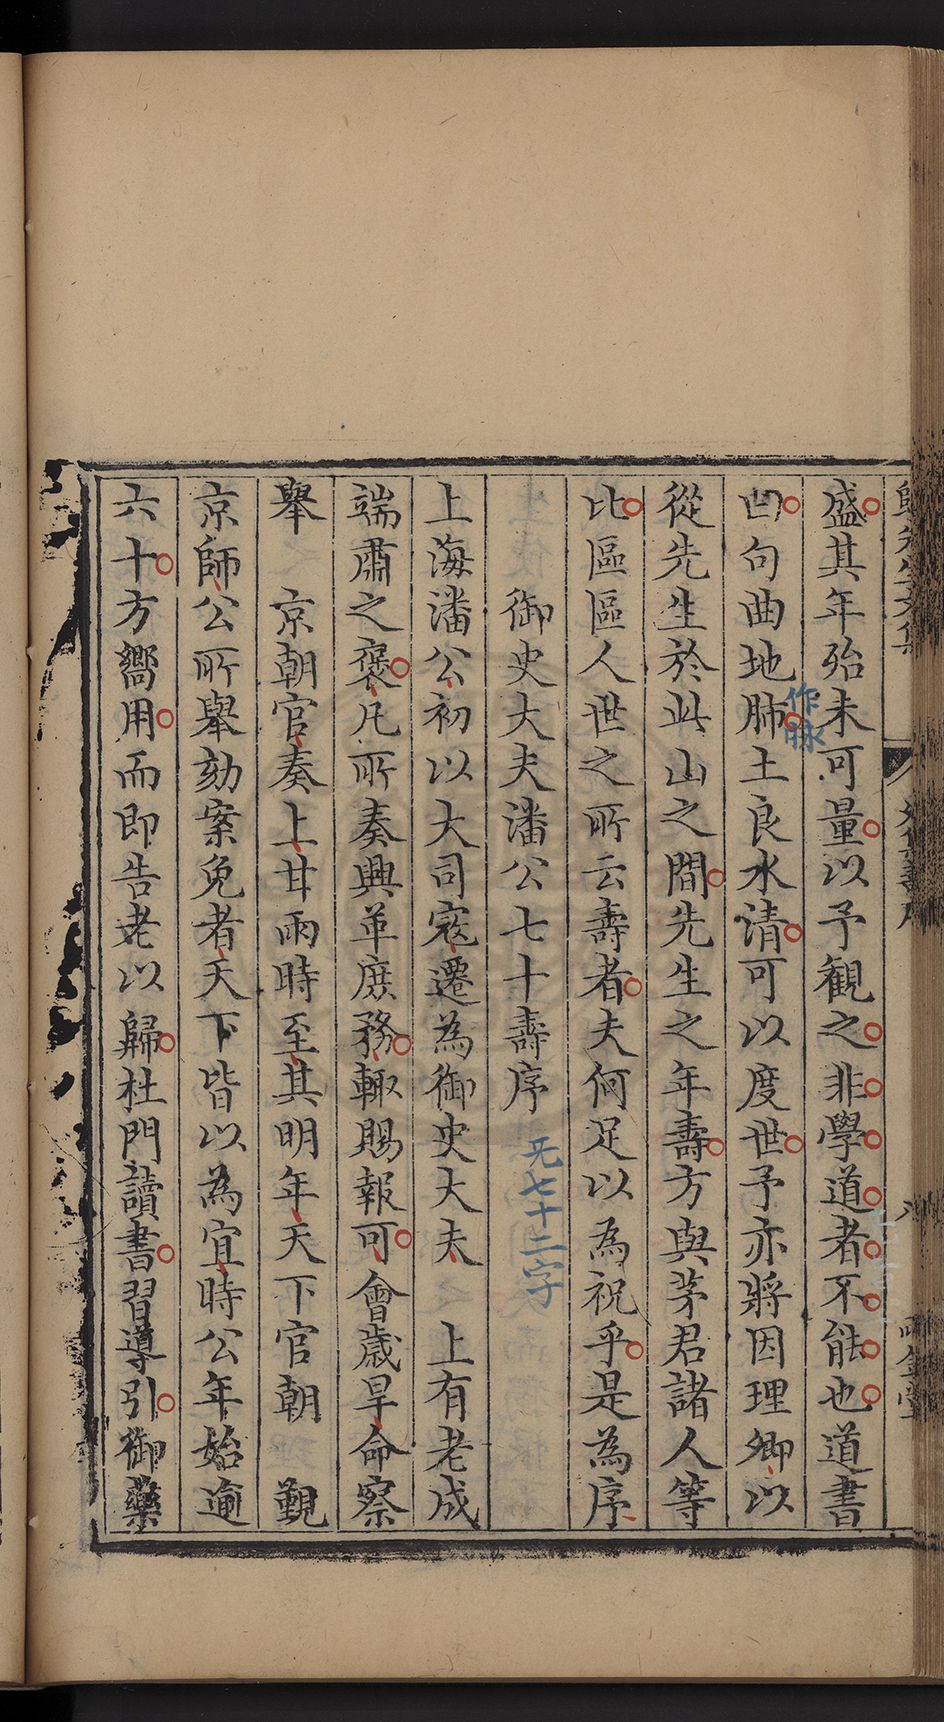 盛其年殆未可量以予觀之非學道者不能也道書
凹句曲地肺土良水清可以度世予亦將因理卿以
作脉
從先生於此山之間先生之年壽方與茅君諸人等
比區區人世之所云壽者夫何足以為祝乎是為序
御史大夫潘公七十壽序
七十二字
上海潘公初以大司寇遷為御史大夫　上有老成
端肅之襃凡所奏興革庶務輙賜報可會歲旱命察
舉　京朝官奏上甘雨時至其明年天下官朝　覲
京師公所舉劾案免者天下皆以為宜時公年始逾
六十方嚮用而即告老以歸杜門讀書習導引御藥